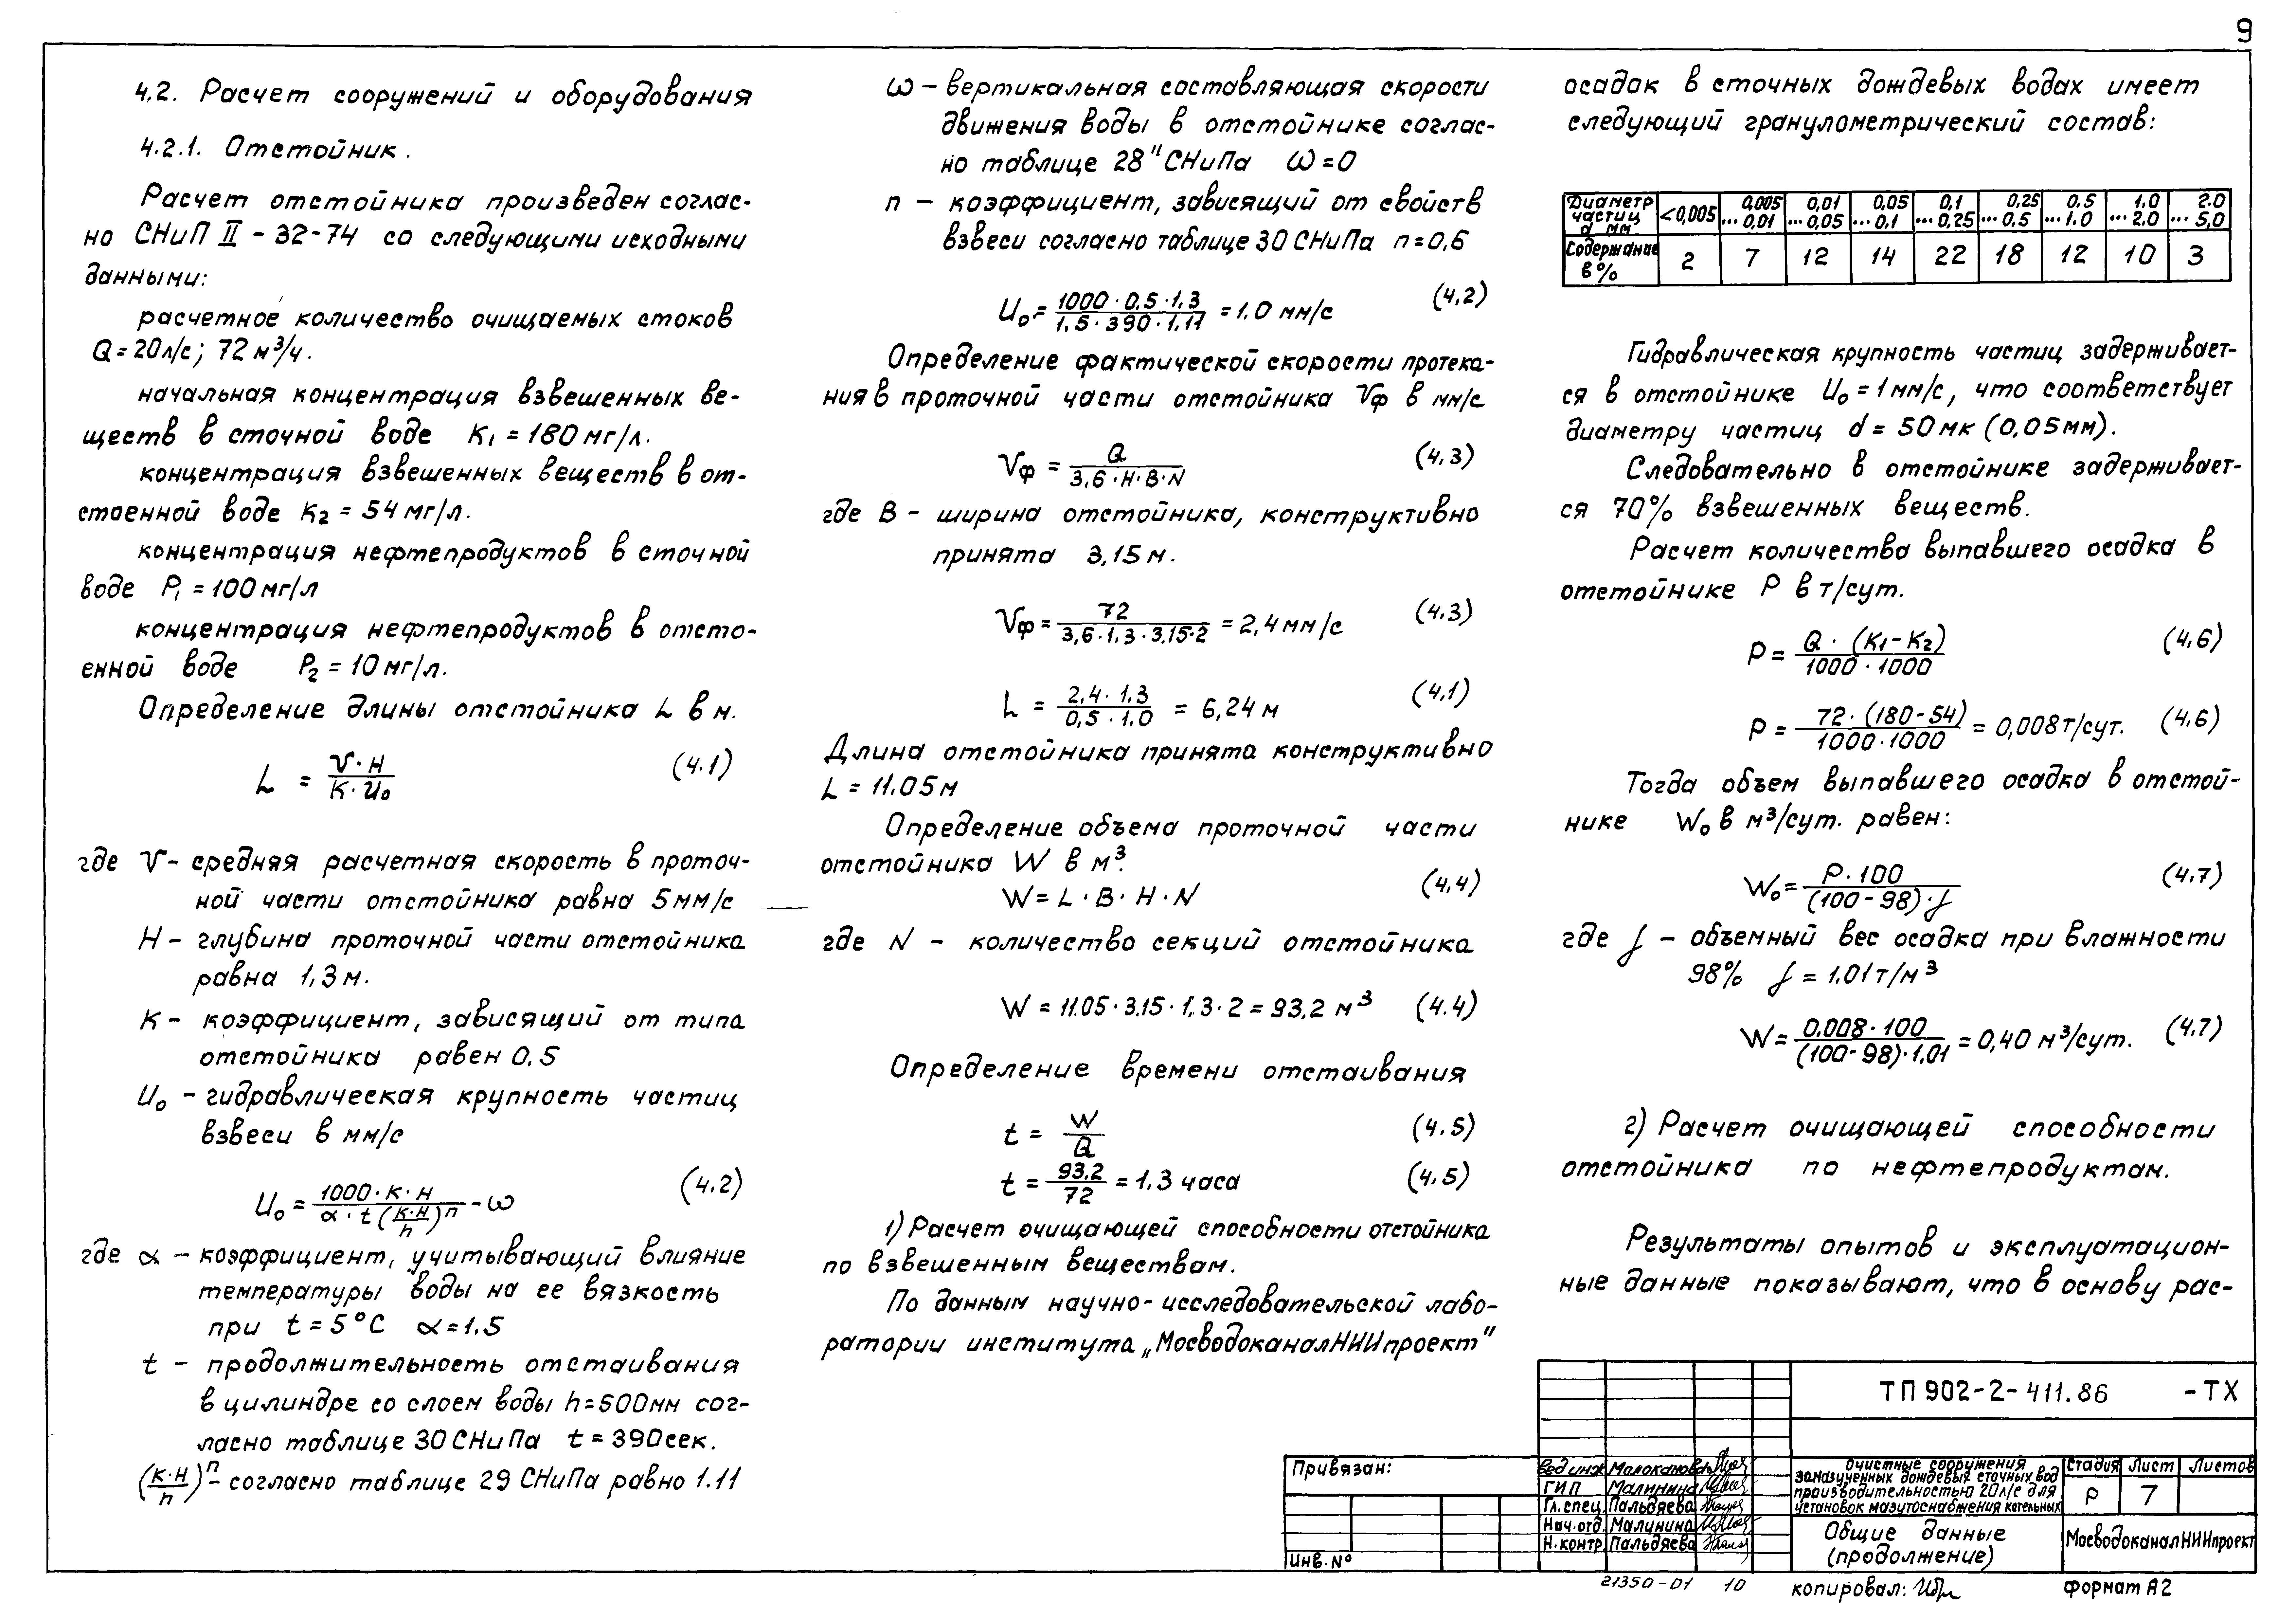 9
4.2. Расчет сооружений и оборудования
4.2.1. Отстойник.
Расчет отстойника произведен соглас-
но СНиП II - 32-74 со следующими исходными
данными:
расчетное количество очищаемых стоков
Q = 20 л/с; 72 м³/ч.
начальная концентрация взвешенных ве-
ществ в сточной воде K₁ = 180 мг/л.
концентрация взвешенных веществ в от-
стоенной воде K₂ = 54 мг/л.
концентрация нефтепродуктов в сточной
воде P₁ = 100 мг/л
концентрация нефтепродуктов в отсто-
енной воде P₂ = 10 мг/л.
Определение длины отстойника L в м.
L = V·H / K·U₀ (4.1)
где V - средняя расчетная скорость в проточ-
ной части отстойника равна 5 мм/с
H - глубина проточной части отстойника
равна 1,3 м.
K - коэффициент, зависящий от типа
отстойника равен 0,5
U₀ - гидравлическая крупность частиц
взвеси в мм/с
U₀ = 1000·K·H / α·t (K·H/h)ⁿ - ω (4.2)
где α - коэффициент, учитывающий влияние
температуры воды на ее вязкость
при t = 5°C α = 1.5
t - продолжительность отстаивания
в цилиндре со слоем воды h = 500 мм сог-
ласно таблице 30 СНиПа t = 390 сек.
(K·H/h)ⁿ - согласно таблице 29 СНиПа равно 1.11
ω - вертикальная составляющая скорости
движения воды в отстойнике соглас-
но таблице 28 " СНиПа ω = 0
n - коэффициент, зависящий от свойств
взвеси согласно таблице 30 СНиПа n = 0,6
U₀ = 1000·0,5·1,3 / 1,5·390·1,11 = 1.0 мм/с (4,2)
Определение фактической скорости протека-
ния в проточной части отстойника Vф в мм/с
Vф = Q / 3,6·H·B·N (4,3)
где B - ширина отстойника, конструктивно
принята 3,15 м.
Vф = 72 / 3,6·1,3·3,15·2 = 2,4 мм/с (4,3)
L = 2,4·1,3 / 0,5·1,0 = 6,24 м (4,1)
Длина отстойника принята конструктивно
L = 11.05 м
Определение объема проточной части
отстойника W в м³.
W = L·B·H·N (4,4)
где N - количество секций отстойника
W = 11.05·3.15·1,3·2 = 93,2 м³ (4.4)
Определение времени отстаивания
t = W / Q (4.5)
t = 93,2 / 72 = 1.3 часа (4,5)
1) Расчет очищающей способности отстойника
по взвешенным веществам.
По данным научно-исследовательской лабо-
ратории института „МосводоканалНИИпроект"
осадок в сточных дождевых водах имеет
следующий гранулометрический состав:
Диаметр частиц d мм <0,005 0,005...0,01 0,01...0,05 0,05...0,1 0,1...0,25 0,25...0,5 0.5...1.0 1.0...2.0 2.0...5,0
Содержание в % 2 7 12 14 22 18 12 10 3
Гидравлическая крупность частиц задерживает-
ся в отстойнике U₀ = 1 мм/с, что соответствует
диаметру частиц d = 50 мк (0,05 мм).
Следовательно в отстойнике задерживает-
ся 70% взвешенных веществ.
Расчет количества выпавшего осадка в
отстойнике P в т/сут.
P = Q·(K₁-K₂) / 1000·1000 (4,6)
P = 72·(180-54) / 1000·1000 = 0,008 т/сут. (4,6)
Тогда объем выпавшего осадка в отстой-
нике W₀ в м³/сут. равен:
W₀ = P·100 / (100-98)·f (4,7)
где f - объемный вес осадка при влажности
98% f = 1.01 т/м³
W = 0.008·100 / (100-98)·1,01 = 0,40 м³/сут. (4,7)
2) Расчет очищающей способности
отстойника по нефтепродуктам.
Результаты опытов и эксплуатацион-
ные данные показывают, что в основу рас-
ТП 902-2-411.86 -ТХ
Привязан:
Инв.№
Вед инж Малоканова
ГИП Малинина
Гл.спец. Пальдяева
Нач.отд. Малинина
Н.контр. Пальдяева
Очистные сооружения
замазученных дождевых сточных вод
производительностью 20 л/с для
установок мазутоснабжения котельных
Стадия Лист Листов
Р 7
Общие данные
(продолжение)
МосводоканалНИИпроект
21350-01 10
копировал:
формат А2